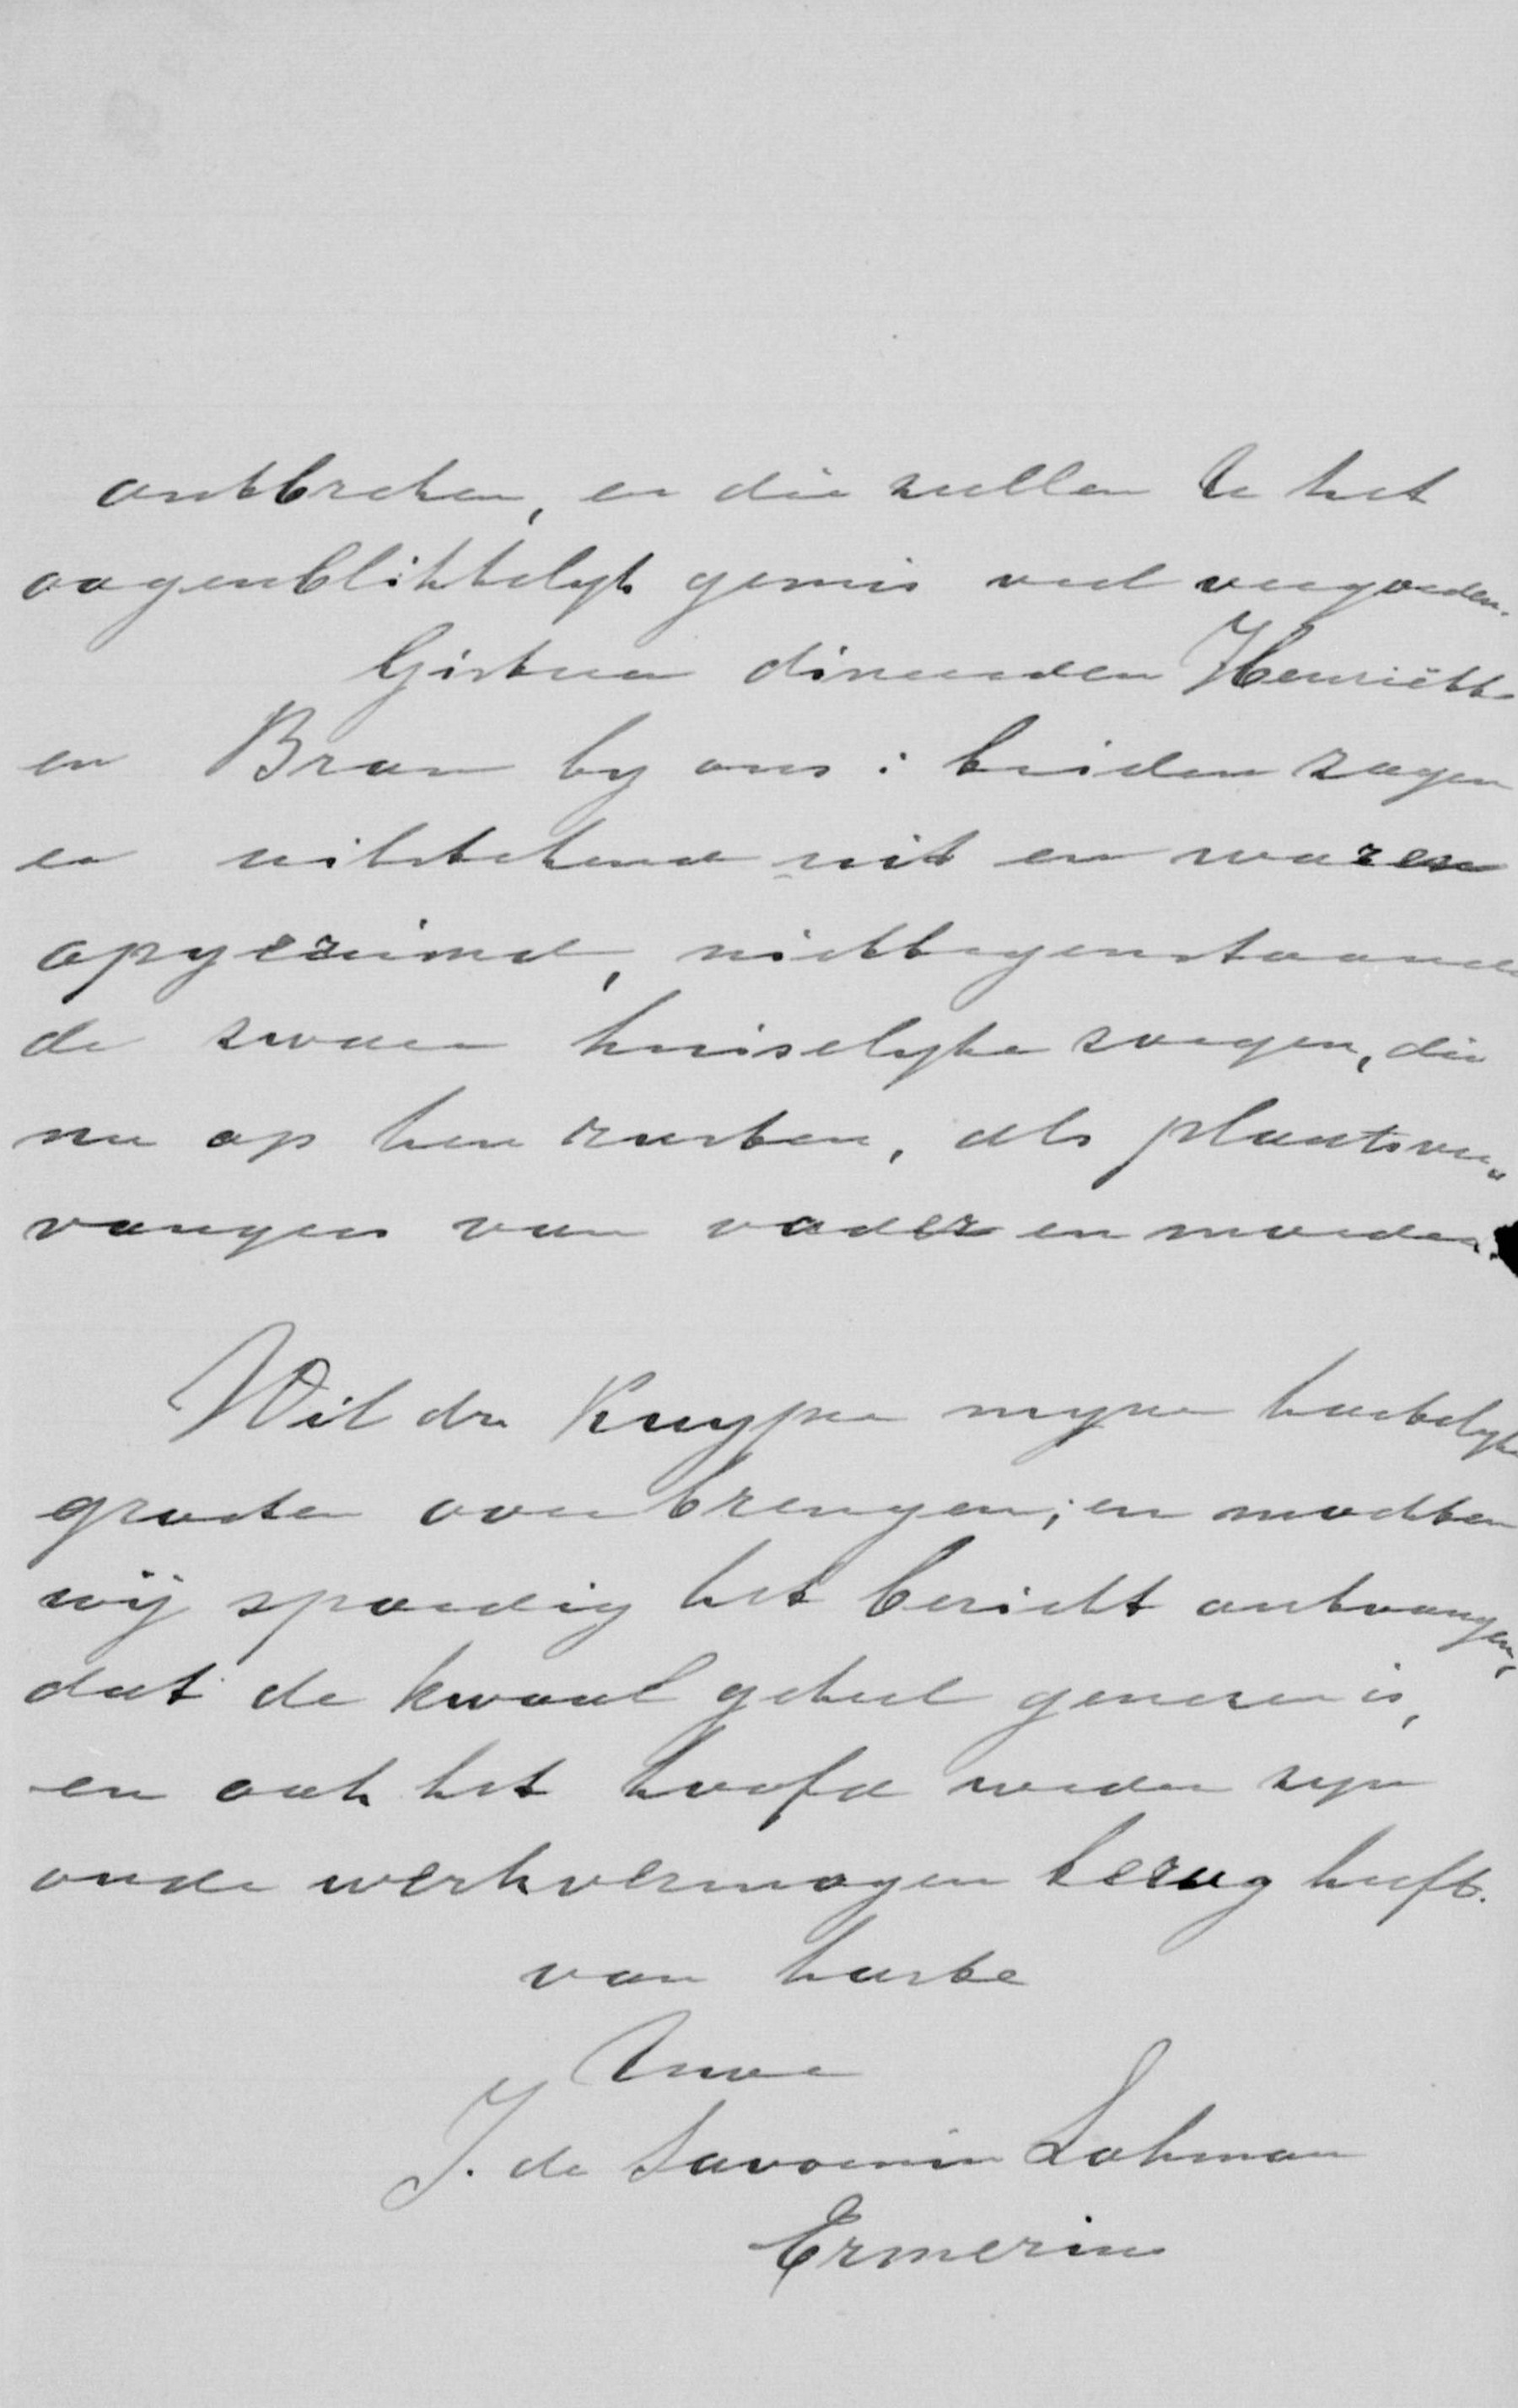 ontbreken, en die zullen U het
oogenblikkelijk gemis veel vergoeden.
Gisteren dineerden Henriëtte
en Bram by ons: beiden zagen
er uitstekend uit en waren
opgeruimd, niettegenstaande
de zware huiselyke zorgen, die
nu op hen rusten, als plaatsver„
vangers van vader en moeder.
Wil dr Kuyper myne hartelyke
groeten overbrengen; en mochten
wij spoedig het bericht ontvangen,
dat de kwaal geheel genezen is,
en ook het hoofd weder zyn
oude werkvermogen terug heeft.
van harte
Uwe
J. de Savornin Lohman
Ermerins